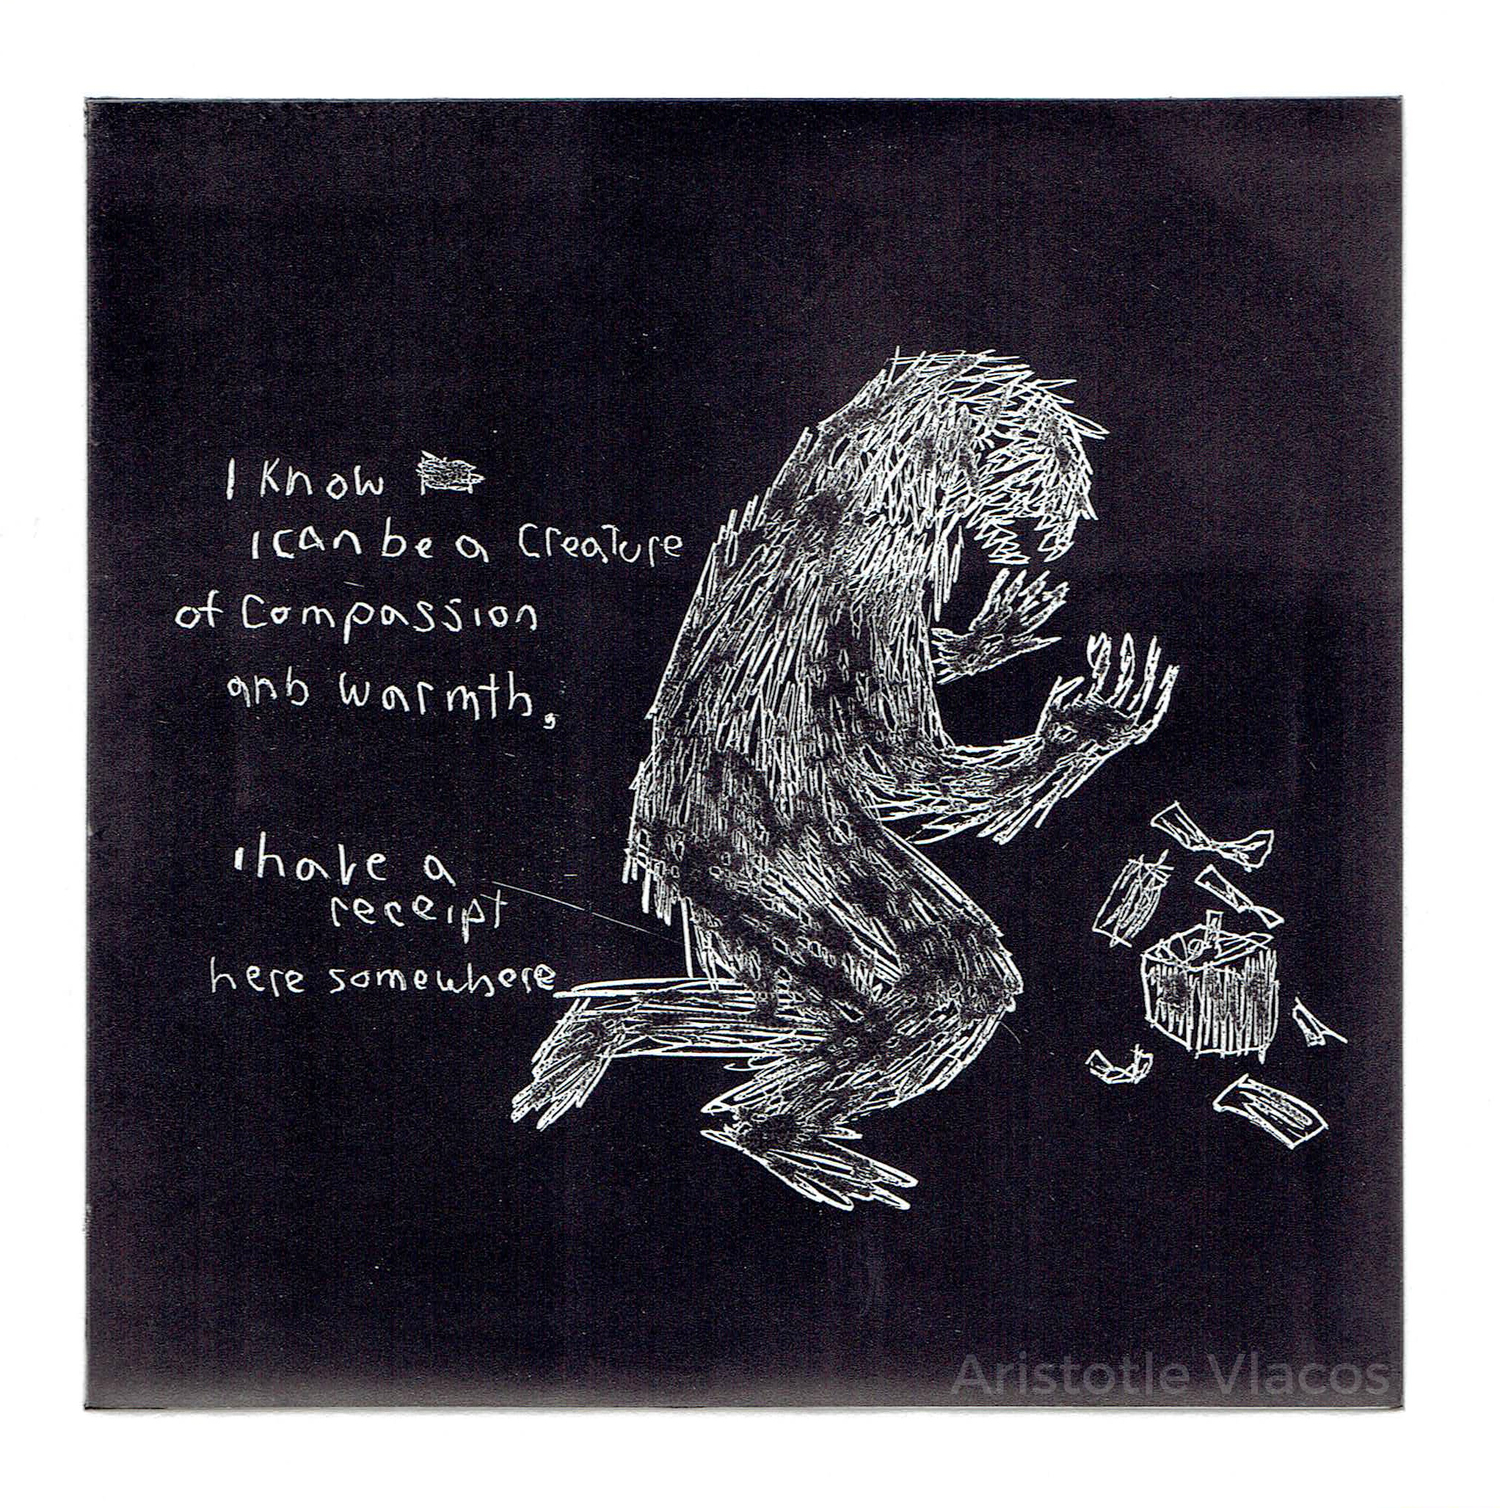 I Know
I can be a Creature
of Compassion
anb warmth,
I have a
receipt
here somewhere
Aristotle Vlacos